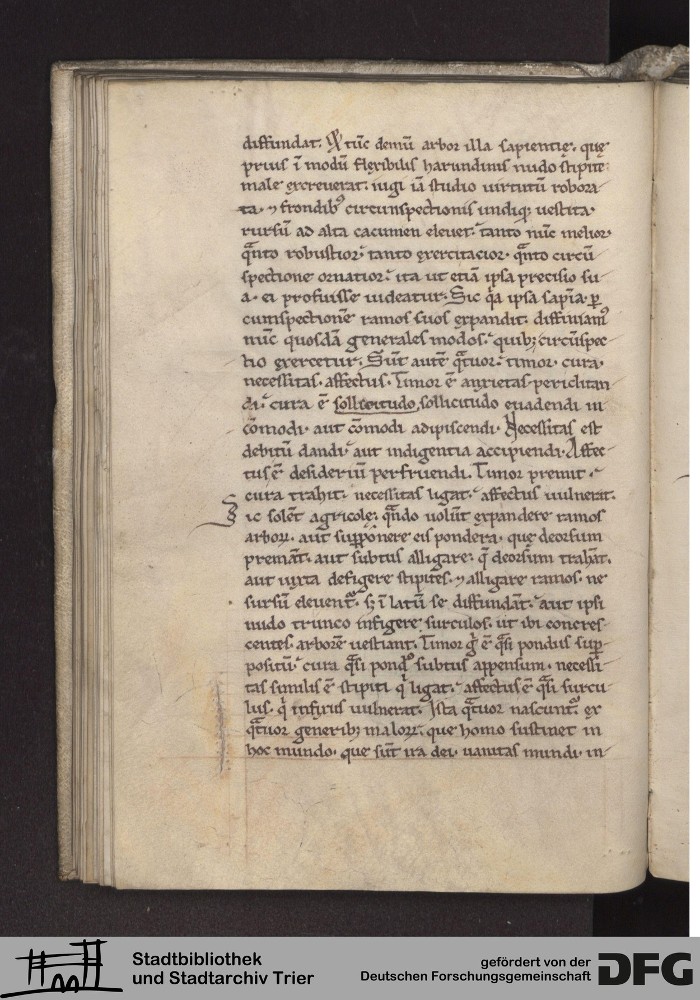 diffundat. Et tūc demū arbor illa sapientię. quę
prius ī modū flexibilis harundinis nudo stipite
male excreuerat. iugi iā studio uirtutū robora
ta. ⁊ frondib; circunspectionis undiq; uestita.
rursū ad alta cacumen eleuet. tanto nūc melior.
q̄nto robustior. tanto exercitacior. q̄nto circū
spectione ornatior. ita ut etiā ipsa precisio su
a. ei profuisse uideatur. Sic q̄a ipsa sapīa. ꝑ
cumspectionē ramos suos expandit. diffiniam᾽
nunc quosdā generales modos. quib; circūspec
tio exercetur. Sūt autē q̄tuor. timor. cura.
necessitas. affectus. Timor ē anxietas periclitan
di. cura ē sollicitudo sollicitudo euadendi in
cōmodi. aut cōmodi adipiscendi. Necessitas est
debitū dandi. aut indigentia accipiendi. Affec
tus ē desideriū perfruendi. Timor premit.
cura trahit. necessitas ligat. affectus uulnerat.
Sic solēt agricolę. q̄ndo uolūt expandere ramos
arborꝝ. aut supponere eis pondera. que deorsum
premāt. aut subtus alligare. q̄ deorsum trahāt.
aut iuxta defigere stipites. ⁊ alligare ramos. ne
sursū eleuent᾽. s; ī latū se diffundāt. aut ipsi
nudo trunco infigere surculos. ut ibi concres
centes. arborē uestiant. Timor g̊ ē q̄si pondus sup
positū. cura q̄si pond᾽ subtus appensum. necessi
tas similis ē stipiti q̇ ligat. affectus ē q̄si surcu
lus. q̇ infixus uulnerat. Ista q̄tuor nascunt᾽. ex
q̄tuor generib; malorꝝ. que homo sustinet in
hoc mundo. que sūt ira dei. uanitas mundi. in
Stadtbibliothek
und Stadtarchiv Trier
gefördert von der
Deutschen Forschungsgemeinschaft
DFG